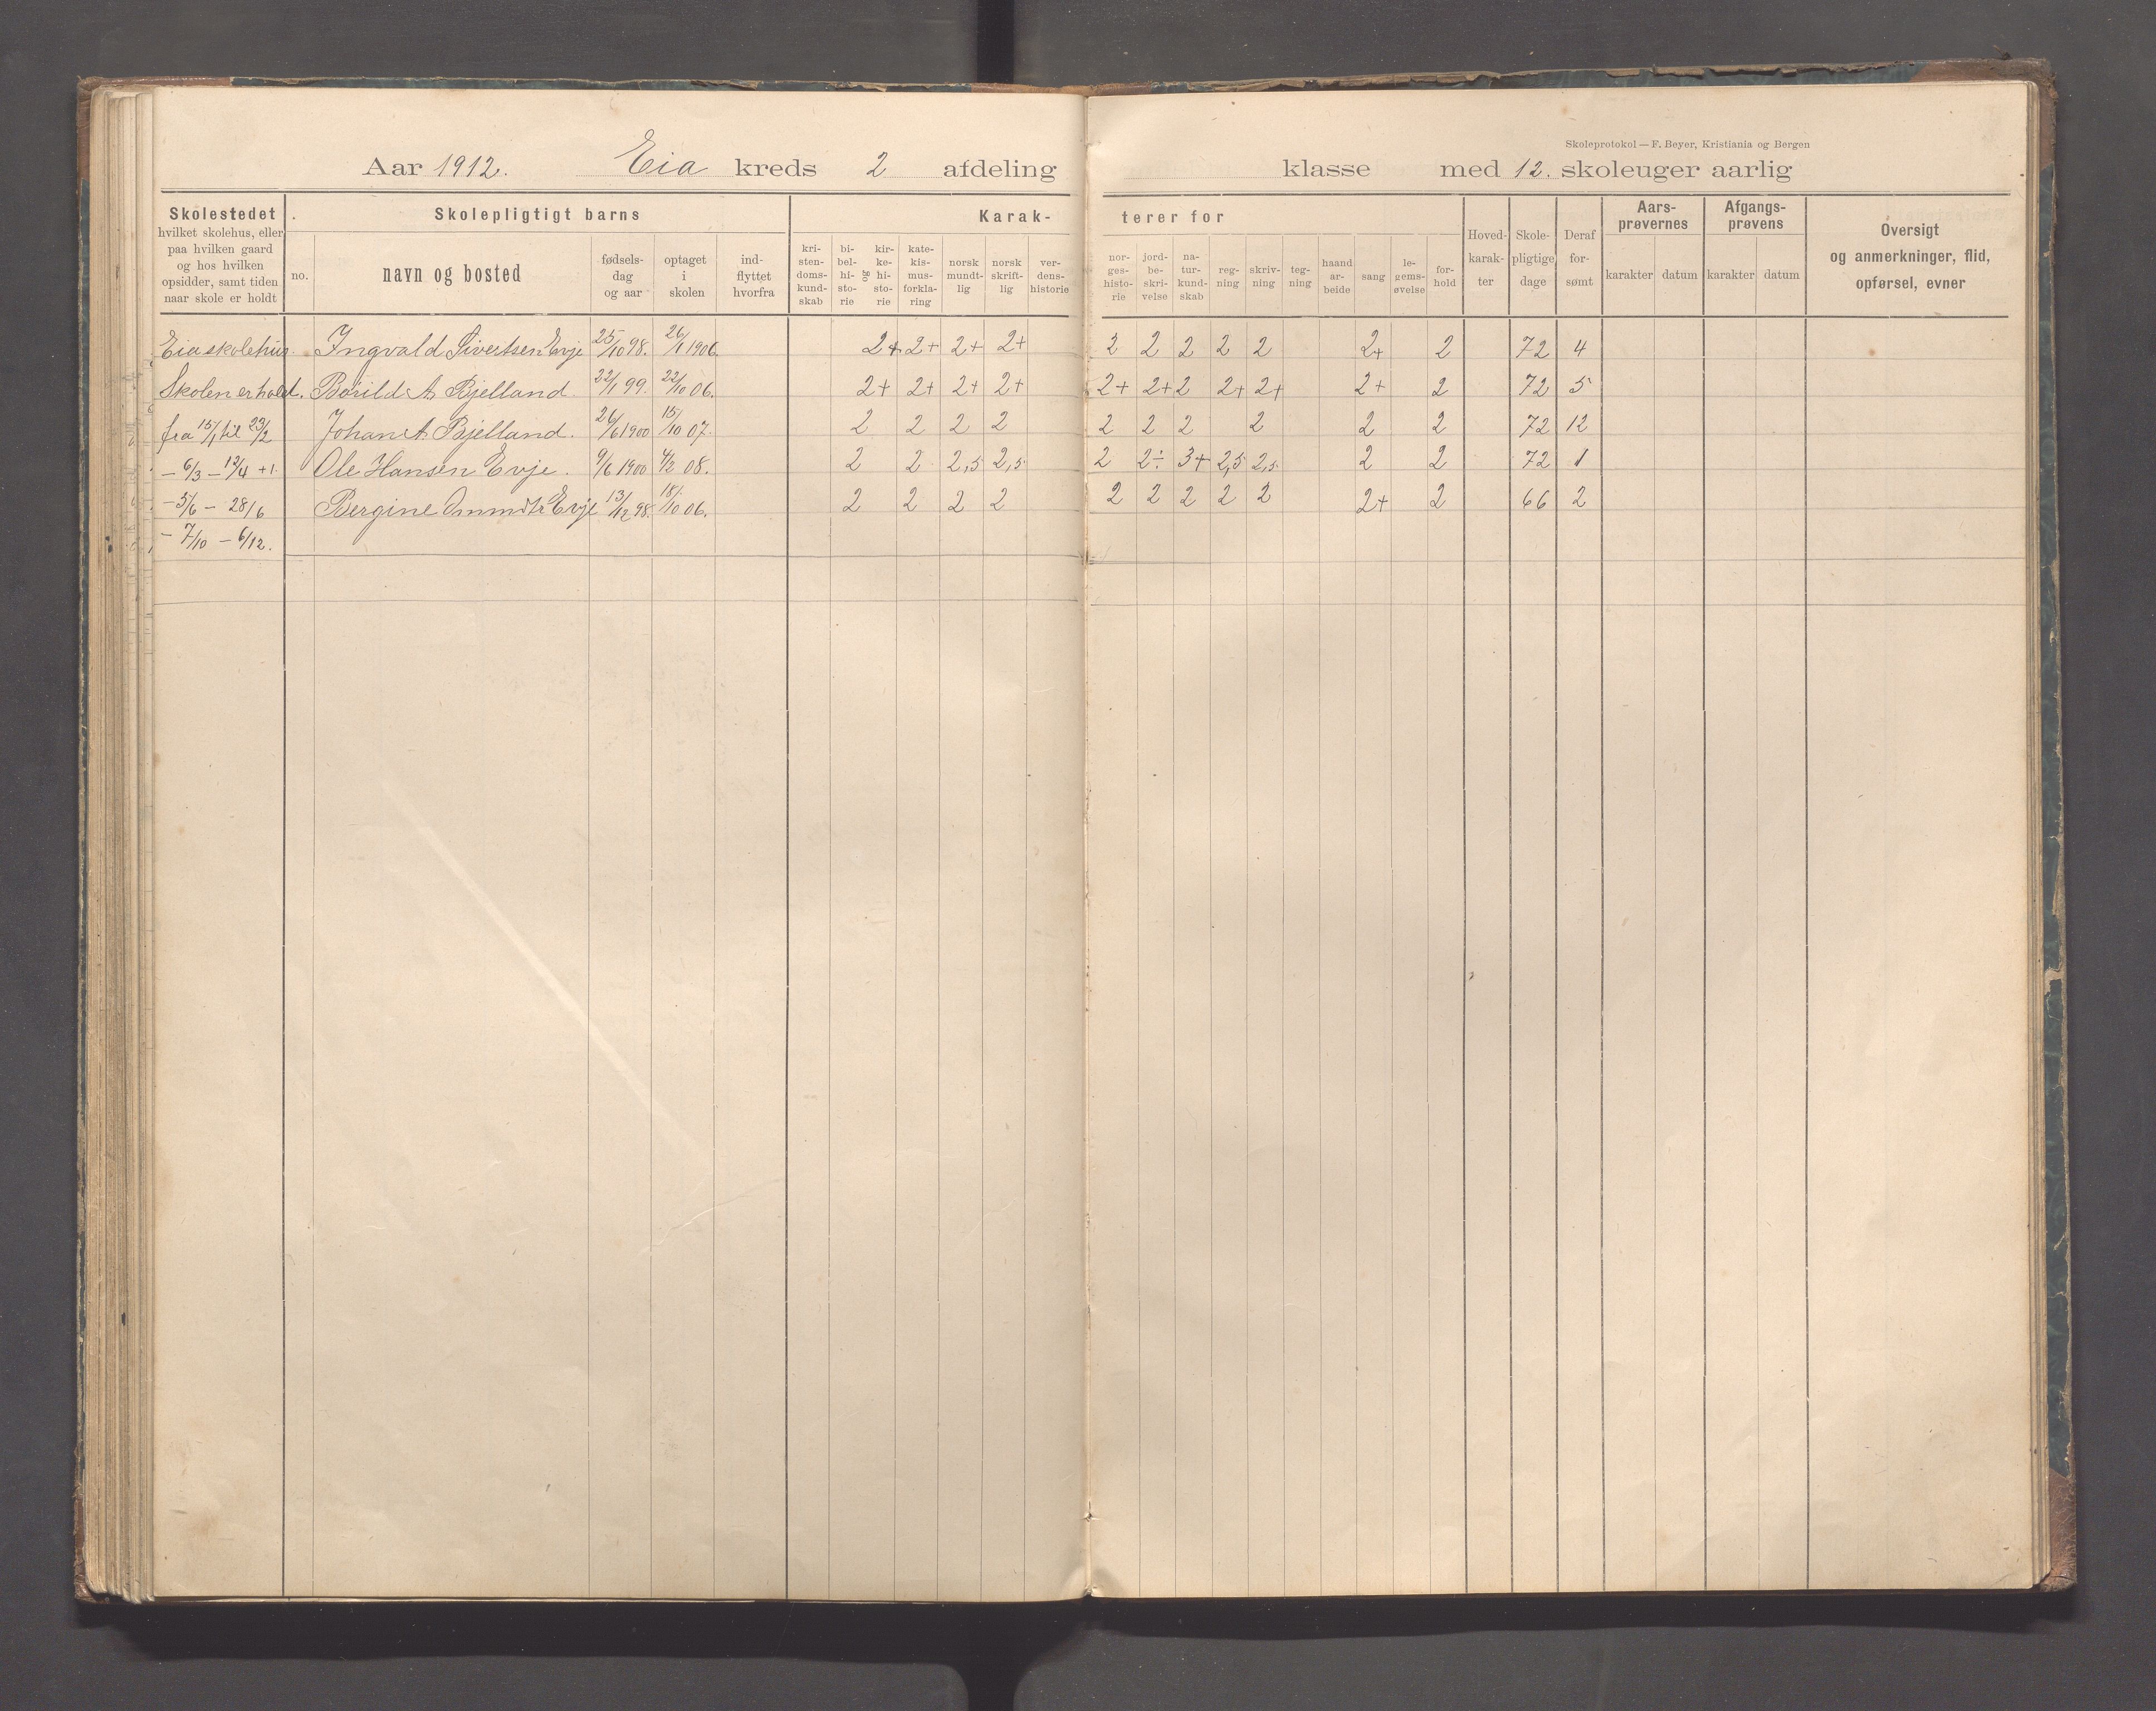 Skoleprotokol — F. Beyer, Kristiania og Bergen
Aar 1912. Eia kreds 2 afdeling klasse med 12. skoleuger aarlig
Skolestedet
hvilket skolehus, eller
paa hvilken gaard
og hos hvilken
opsidder, samt tiden
naar skole er holdt
Skolepligtigt barns
no.
navn og bosted
fødsels-
dag
og aar
optaget
i
skolen
ind-
flyttet
hvorfra
Karak-
terer for
kri-
sten-
doms-
kund-
skab
bi-
bel-
hi-
sto-
rie
og
kir-
ke-
hi-
sto-
rie
kate-
kis-
mus-
forkla-
ring
norsk
mundt-
lig
norsk
skrift-
lig
ver-
dens-
historie
nor-
ges-
histo-
rie
jord-
be-
skri-
velse
na-
tur-
kund-
skab
reg-
ning
skriv-
ning
teg-
ning
haand
ar-
beide
sang
le-
gems-
øvelse
for-
hold
Hoved-
karak-
ter
Skole-
pligtige
dage
Deraf
for-
sømt
Aars-
prøvernes
karakter datum
Afgangs-
prøvens
karakter datum
Oversigt
og anmerkninger, flid,
opførsel, evner
Eia skolehus. Ingvald Sivertsen Evje 25/10 98. 26/1 1906. 2+ 2+ 2+ 2+ 2 2 2 2 2 2+ 2 72 4
Skolen er holdt. Børild A. Bjelland. 22/1 99. 22/10 06. 2+ 2+ 2+ 2+ 2+ 2+ 2 2+ 2+ 2+ 2 72 5
fra 15/1 til 23/2 Johan A. Bjelland. 26/6 1900 15/10 07. 2 2 2 2 2 2 2 2 2 2 72 12
- 6/3 - 12/4 +1. Ole Hansen Evje. 9/6 1900 4/2 08. 2 2 2,5 2,5 2 2÷ 3+ 2,5 2,5 2 2 72 1
- 5/6 - 28/6 Bergine Ommdtr Evje 13/12 98. 18/10 06. 2 2 2 2 2 2 2 2 2 2+ 2 66 2
- 7/10 - 6/12.